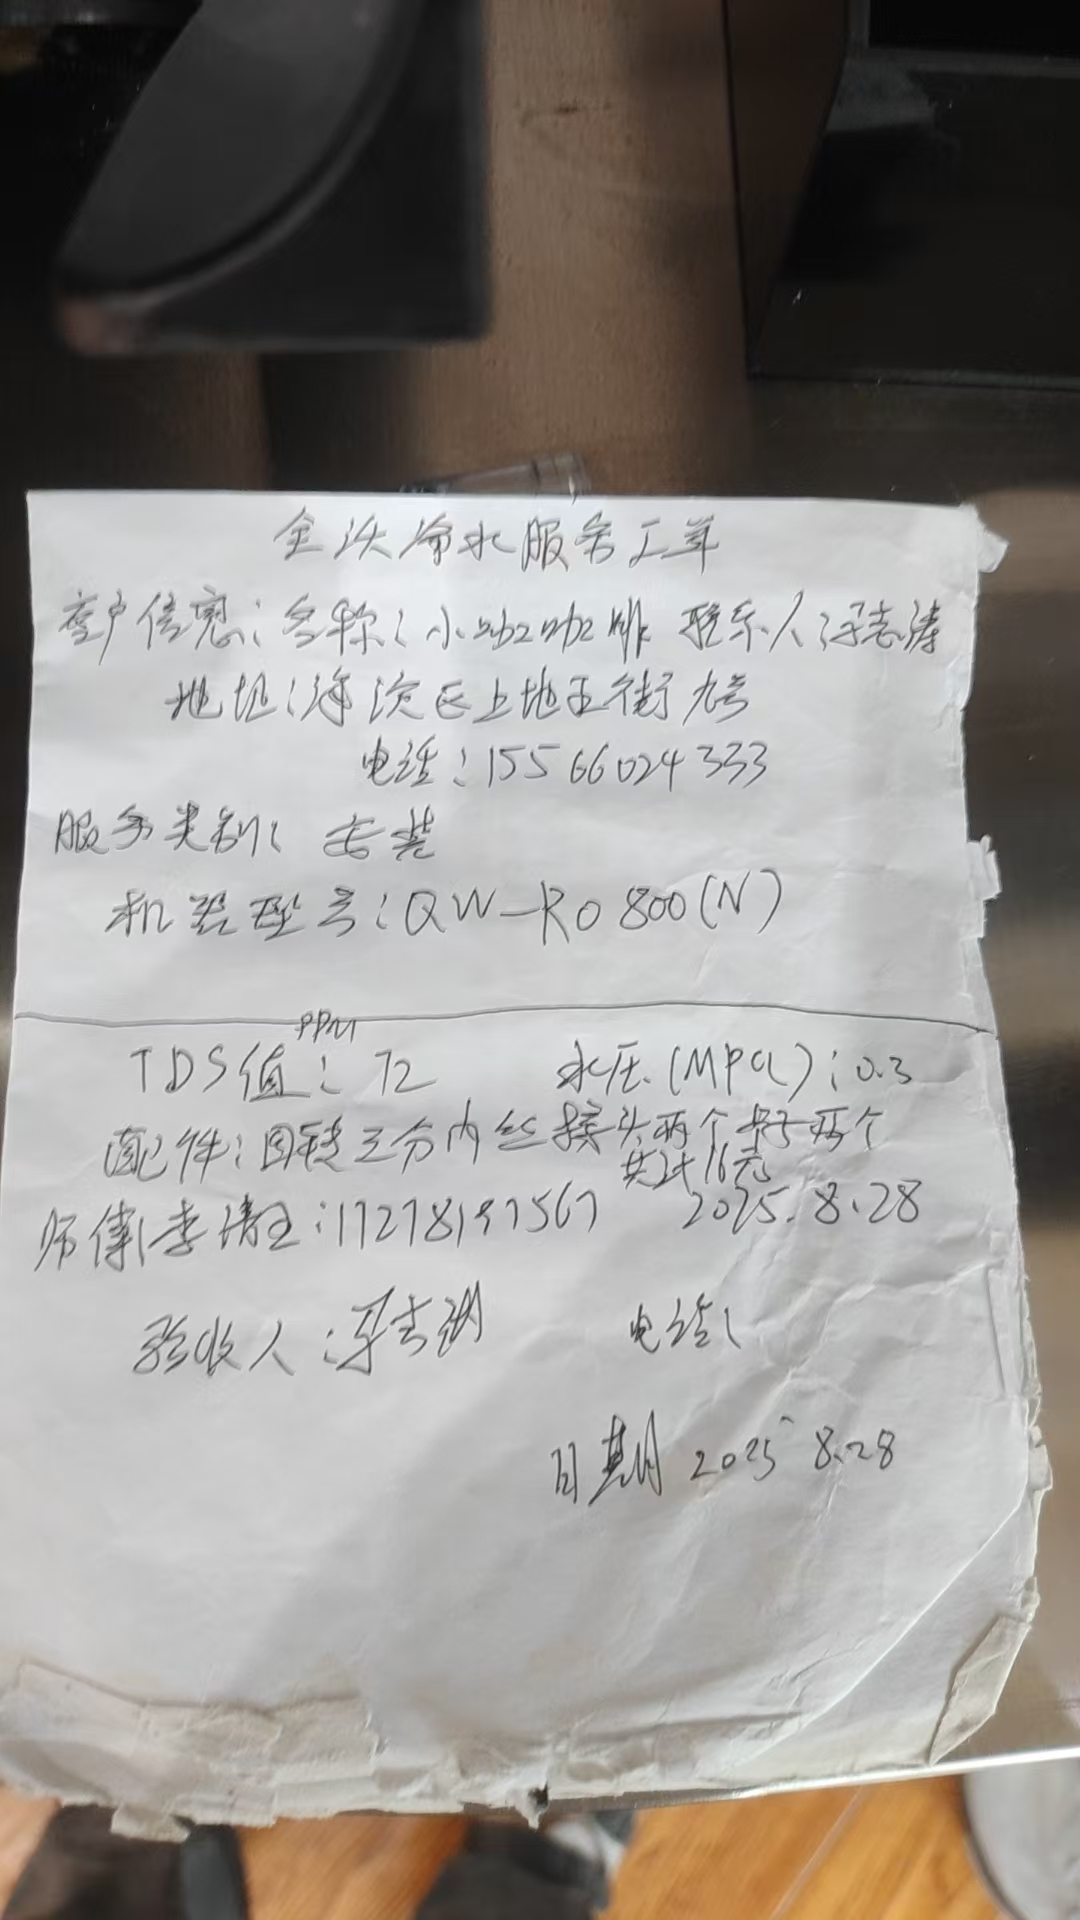 全沃净水服务工单
客户信息：名称：小咖咖啡 联系人：冯志涛
地址：海淀区上地五街九号
电话：15566024333
服务类别： 安装
机器型号：QW-RO800(N)
PPM
TDS值：72 水压(MPa)：0.3
配件：四转三分内丝接头两个 两个
共计16元
师傅：李清玉：17278197567 2025.8.28
验收人： 电话：
日期 2025 8.28